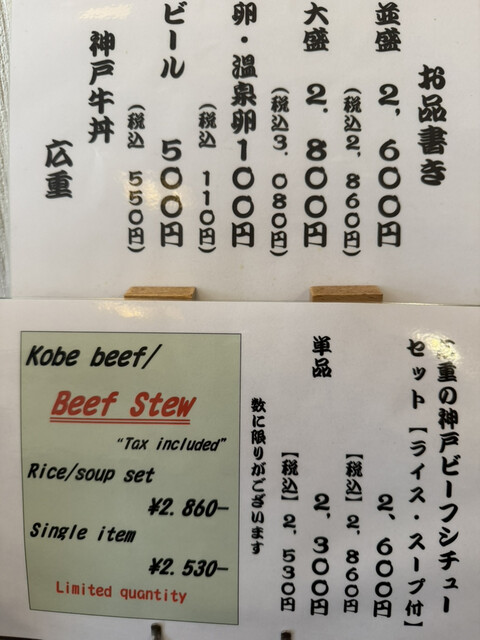 お品書き
並盛 2,600円
(税込2,860円)
大盛 2.800円
(税込3.080円)
卵・温泉卵100円
(税込 110円)
ビール 500円
(税込 550円)
神戸牛丼
広重
重の神戸ビーフシチュー
セット【ライス・スープ付】
2,600円
【税込】2,860円
単品
2,300円
【税込】2,530円
数に限りがございます
Kobe beef/
Beef Stew
"Tax included"
Rice/soup set
¥2.860-
Single item
¥2.530-
Limited quantity